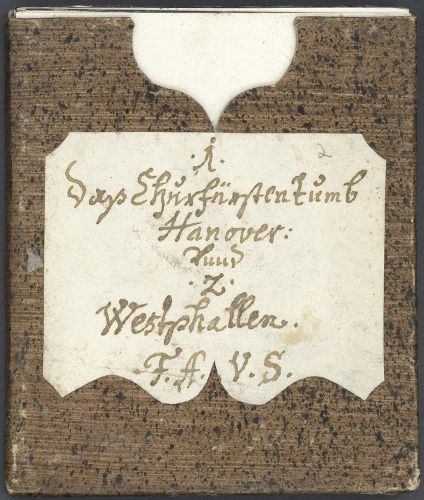 .1. 2
Daß Churfürstentumb
Hanover:
Vund
.2.
Westphallen.
F. A. V. S.